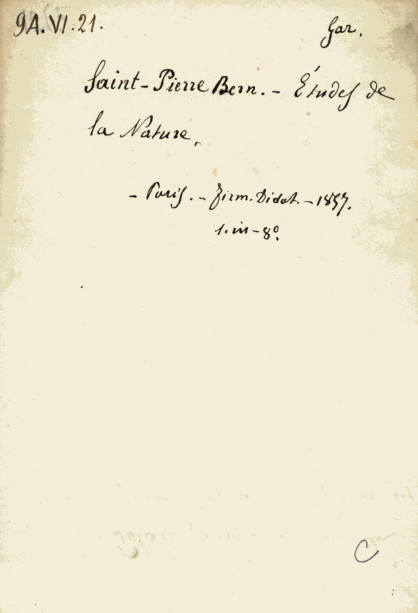 9A.VI.21.
Gar.
Saint-Pierre Bern. - Études de
la Nature,
- Paris. - Firm. Didot. - 1857.
1. in-8º.
C